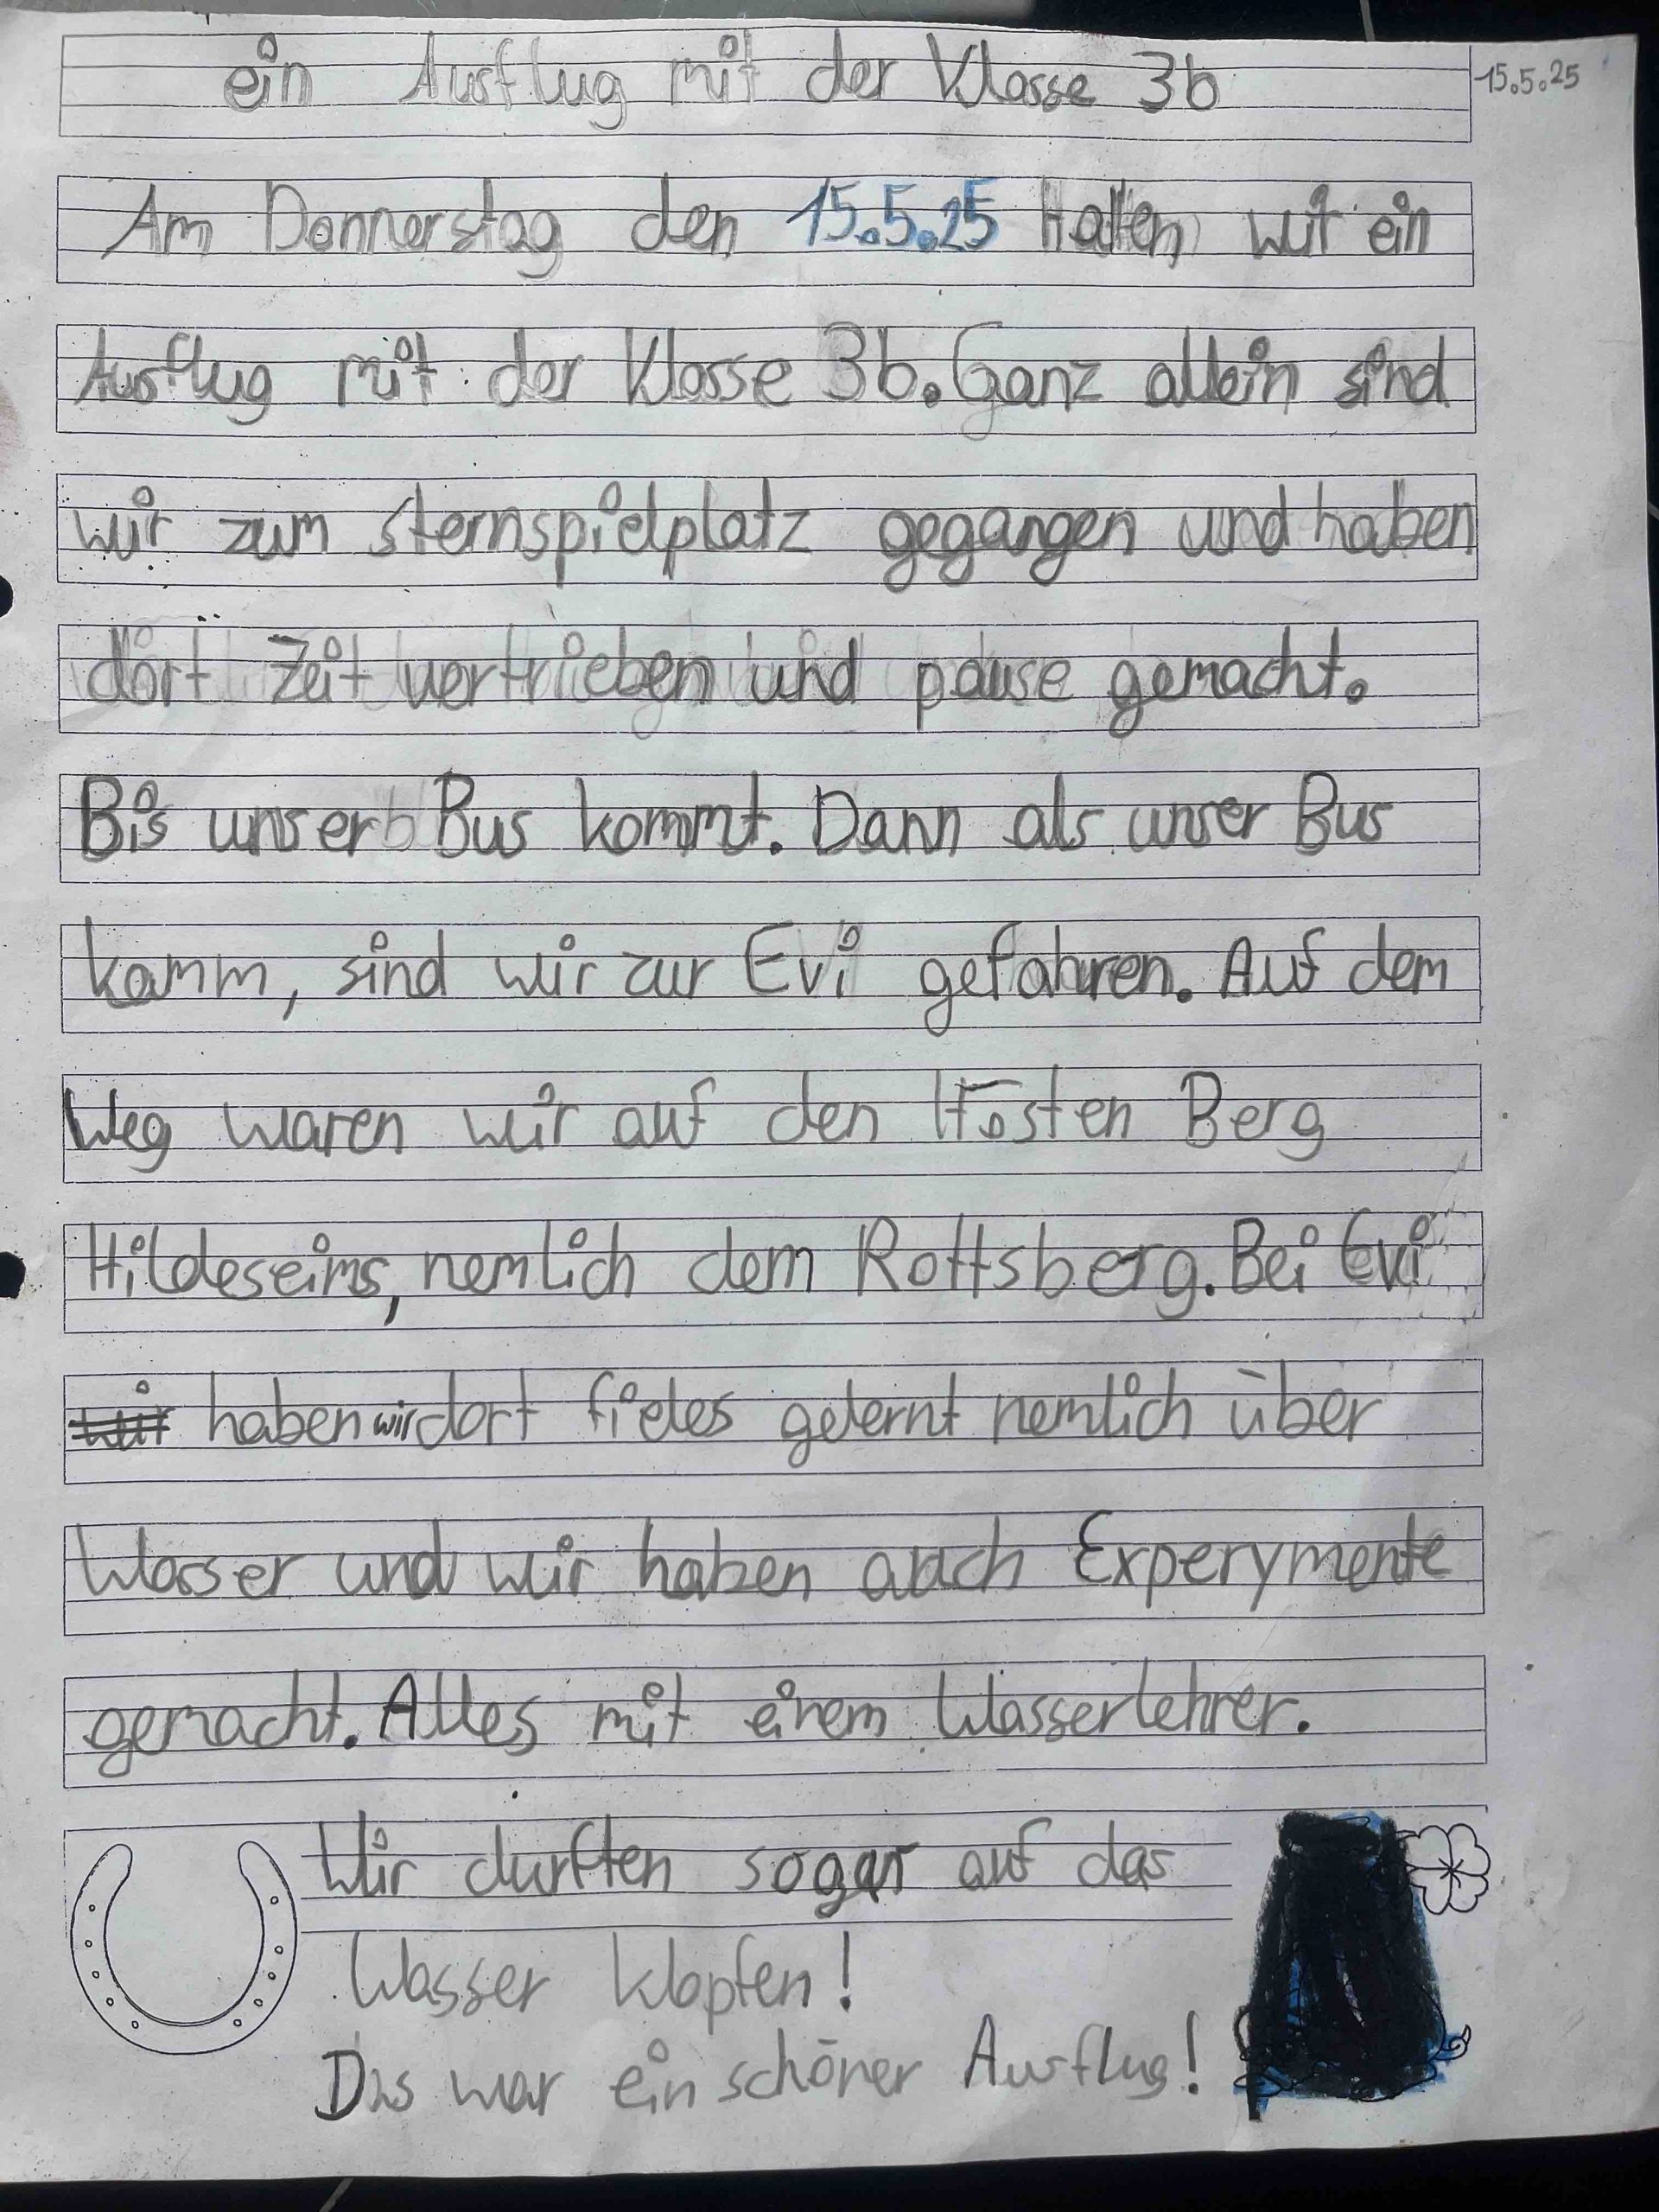 ein Ausflug mit der Klasse 3b
15.5.25
Am Donnerstag den 15.5.25 Hatten wir ein
Ausflug mit der Klasse 3b. Ganz allein sind
wir zum sternspielplatz gegangen und haben
dort Zeit vertrieben und pause gemacht.
Bis unser Bus kommt. Dann als unser Bus
kamm, sind wir zur Evi gefahren. Auf dem
Weg waren wir auf den Berg
Hildeseims, nemlich dem Rottsberg. Bei Evi
wir haben wir dort fieles gelernt nemlich über
Wasser und wir haben auch Experymente
gemacht. Alles mit einem Wasserlehrer.
Wir durften sogar auf das
Wasser klopfen!
Das war ein schöner Ausflug!